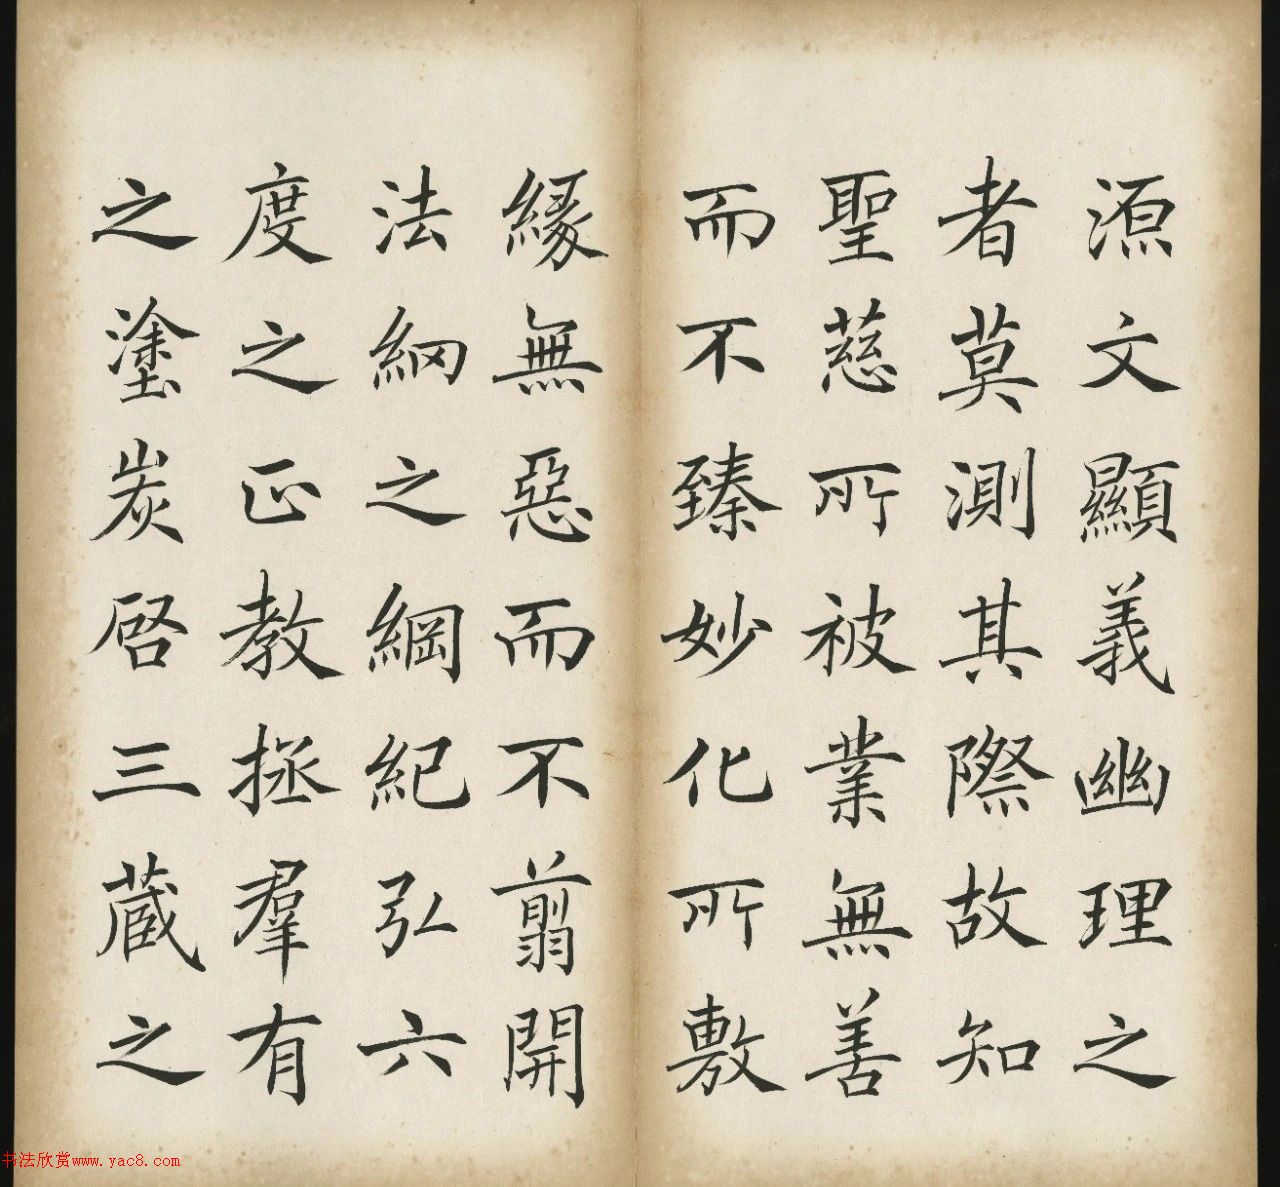 源文顯義幽理之
者莫測其際故知
聖慈所被業無善
而不臻妙化所敷
緣無惡而不翦開
法網之綱紀弘六
度之正教拯羣有
之塗炭啓三藏之
书法欣赏www.yac8.com